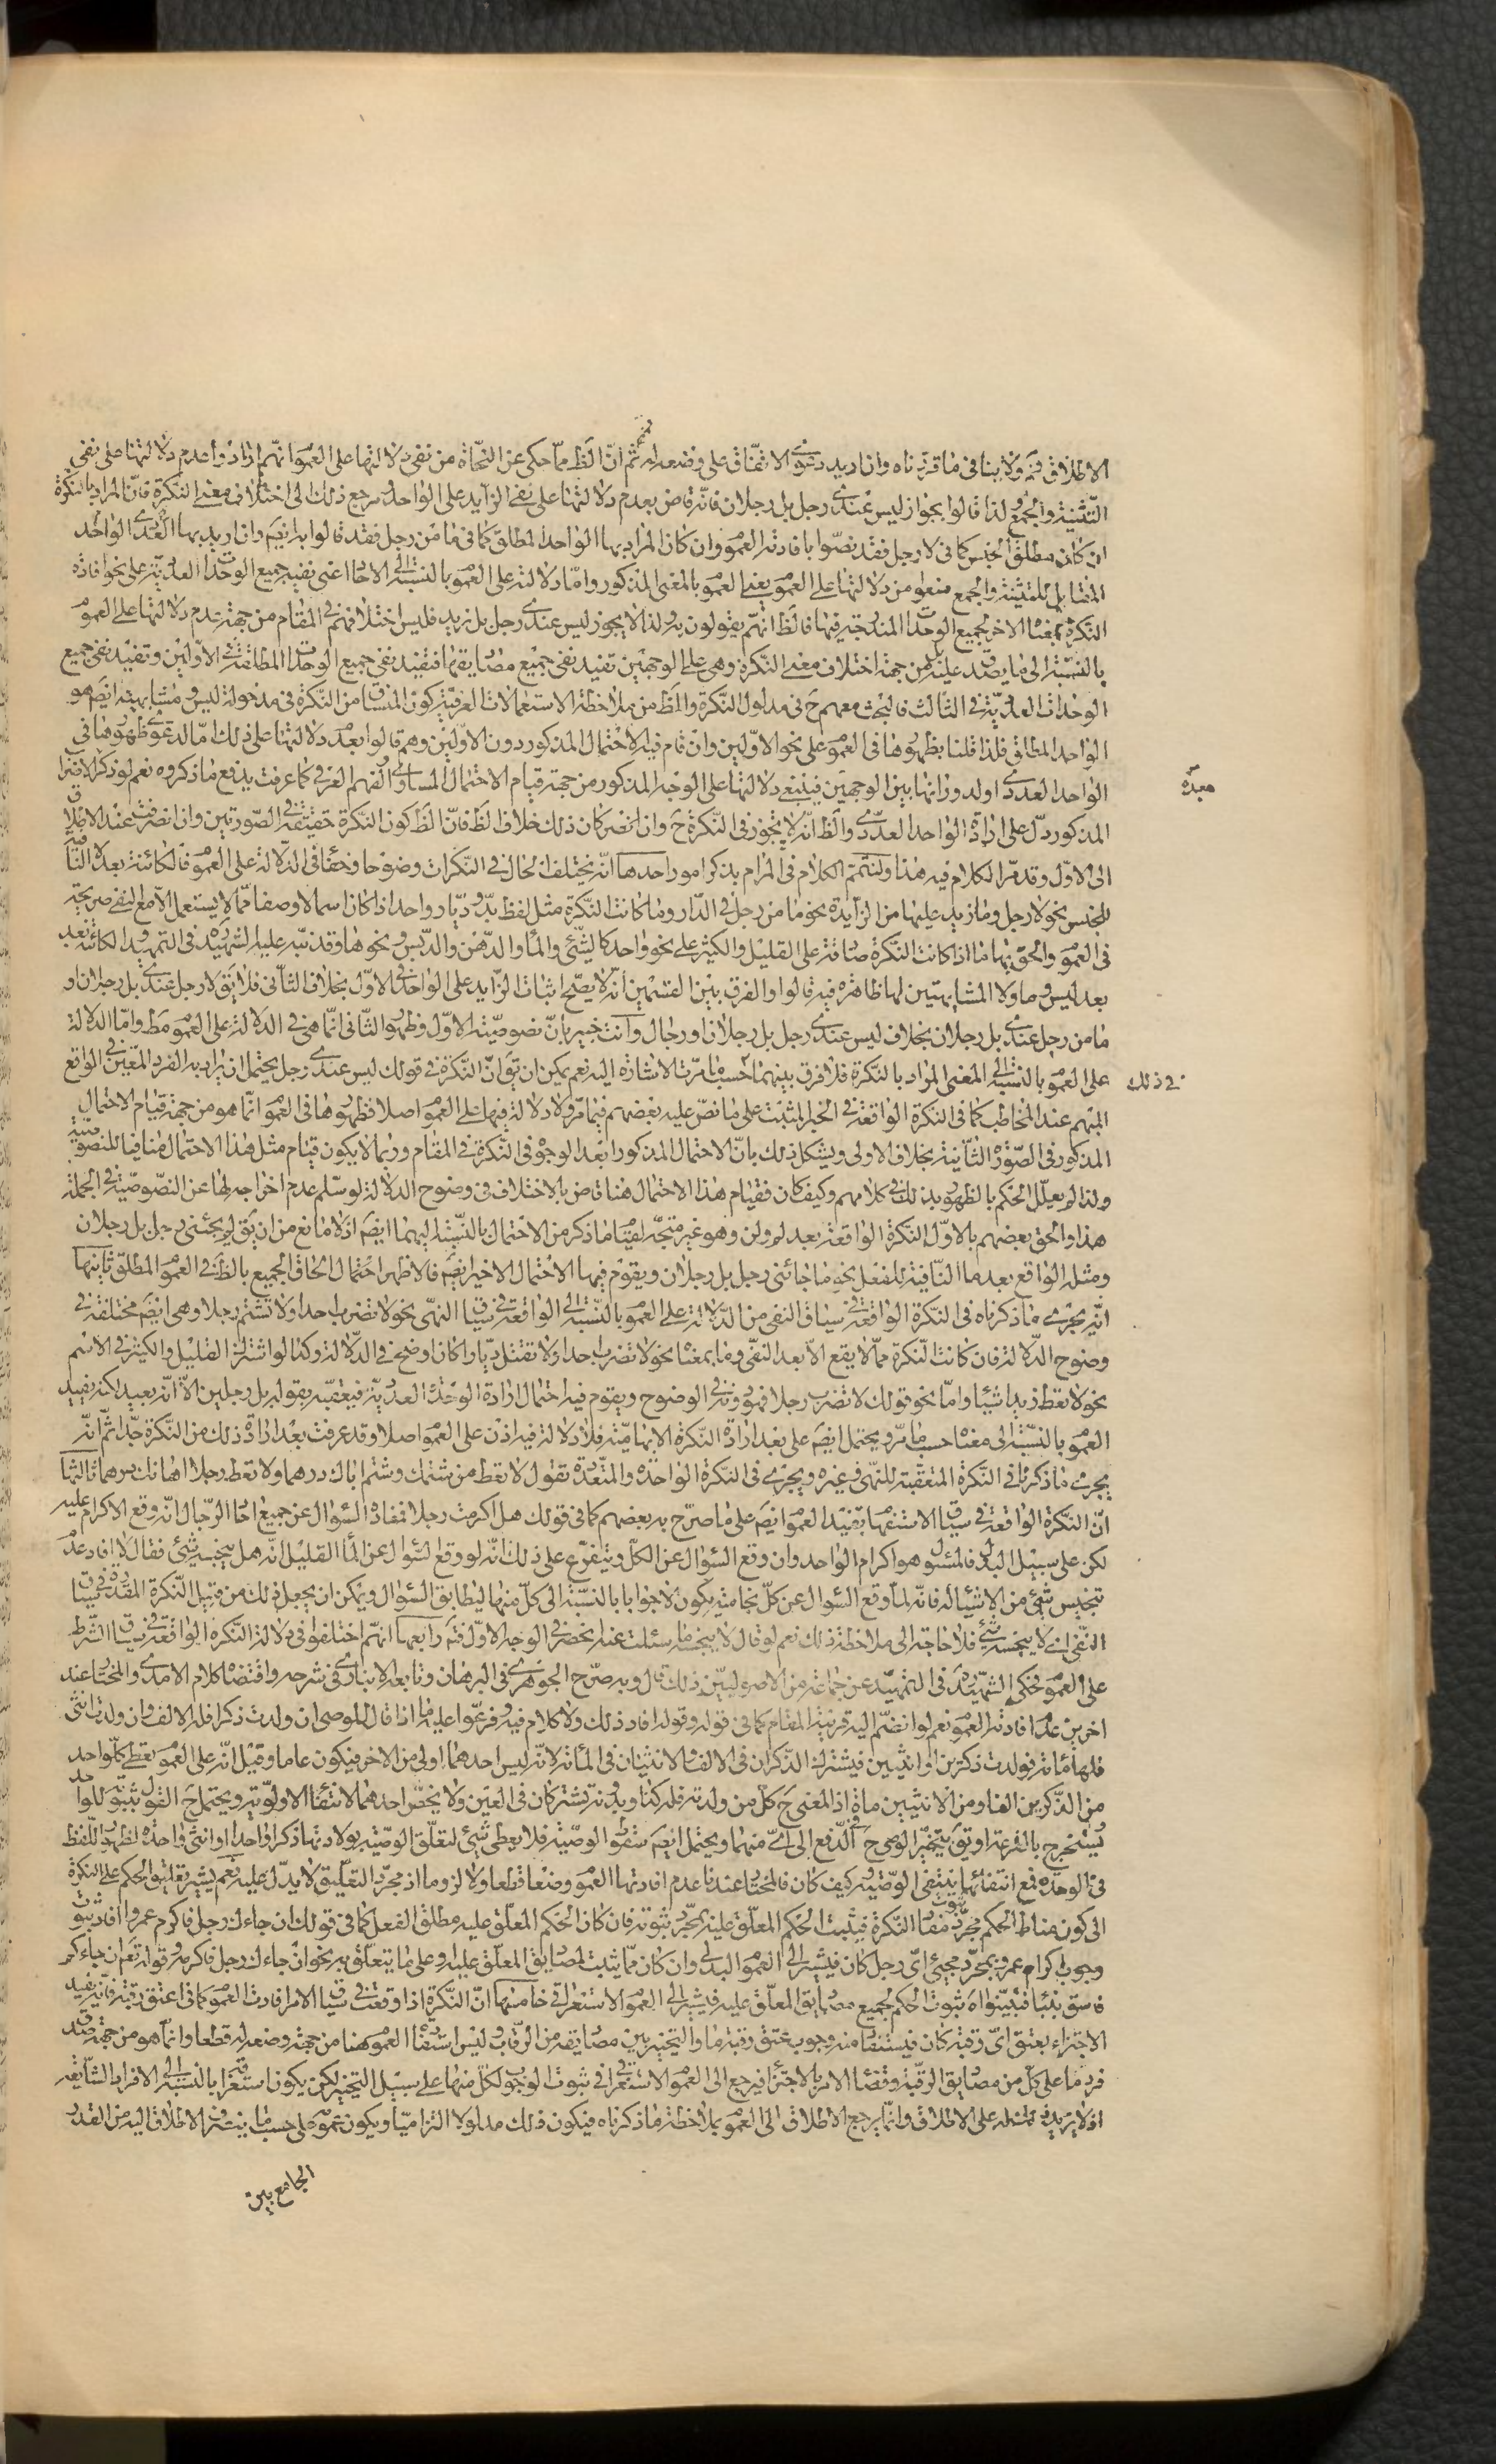 الاطلاق فهو ولا ينافى ما قررناه وان اريد دعوى الاتفاق على وضعه له ثم انّ الظ ممّا حكى عن النّحاة من نفى دلالتها على العموم انهم ارادوا عدم دلالتها على نفى
التّثنية والجمع لذا قالوا بجواز ليس عندى رجل بل رجلان فانّه قاض بعدم دلالتها على نفى الزايد على الواحد ومرجع ذلك الى اختلاف معنى النكرة فانّ المراد بالنكرة
ان كان مطلق الجنس كما فى لا رجل فقد نصّوا بافادته العموم وان كان المراد بها الواحد المطلق كما فى ما من رجل فقد قالوا به ايضم وان اريد بها العددى الواحد
المقابل للتثنية والجمع منعوا من دلالتها على العموم بمعنى العموم بالمعنى المذكور وامّا دلالته على العموم بالنسبة الى الاحاد اعنى نفيه جميع الوحدات العددية على نحو افادة
النكرة بمعناه الاخر لجميع الوحدات المندرجة فيها فالظ انهم يقولون به ولذا لا يجوز ليس عندى رجل بل زيد فليس اختلافهم فى المقام من جهة عدم دلالتها على العموم
بالنسبة الى ما يصدق عليه بل من جهة اختلاف معنى النكرة وهى على الوجهين تفيد نفى جميع مصاديقها فتفيد نفى جميع الوحدات المطلقة فى الاولين وتفيد نفى جميع
الوحدات العددية فى الثالث فالبحث معهم ح فى مدلول النكرة والظ من ملاحظة الاستعمالات العرفية كون المنساق من النكرة فى مدخولة ليس ومشابهيه ايضم هو
الواحد المطلق فلذا قلنا بظهورها فى العموم على نحو الاولين وان قام فيه الاحتمال المذكور دون الاولين وهم قالوا بعدم دلالتها على ذلك امّا لدعوى ظهورها فى
الواحد العددى او لدورانها بين الوجهين فينبغى دلالتها على الوجه المذكور من جهة قيام الاحتمال المساوى والفهم العرفى كما عرفت يدفع ما ذكروه نعم لو ذكر الاضراب
المذكور دلّ على ارادة الواحد العددى والظ انّه لا يجوز فى النكرة ح وان انحصر كان ذلك خلاف الظ فانّ الظ كون النكرة حقيقة فى الصورتين وان انصرفت عند الاطلاق
الى الاول وقد مرّ الكلام فيه هذا ولنتمم الكلام فى المرام بذكر امور احدها انّه يختلف الحال فى النكرات وضوحا وخفاء فى الدلالة على العموم فالكائنة بعد لا النافية
للجنس نحو لا رجل وما زيد عليها من الزايدة نحو ما من رجل فى الدار وما كانت النكرة مثل لفظ بدّ وديّار واحد اذا كان اسما لا وصفا ممّا لا يستعمل الا مع النفى صريحة
فى العموم والحق بها ما اذا كانت النكرة صادقة على القليل والكثير على نحو واحد كالشئ والماء والدهن والدبس ونحوها وقد نبّه عليه الشهيد فى التمهيد والكائنة بعد
بعد ليس وما ولا المشابهتين لها ظاهرة فيه قالوا والفرق بين القسمين انّه لا يصح اثبات الزايد على الواحد فى الاول بخلاف الثانى فلا يق لا رجل عندى بل رجلان و
ما من رجل عندى بل رجلان بخلاف ليس عندى رجل بل رجلان او رجال وانت خبير بانّ نصوصيته الاول وظهور الثانى انّما هى فى الدلالة على العموم مط وامّا الدلالة
على العموم بالنسبة الى المعنى المراد بالنكرة فلا فرق بينهما حسب ما مرّت الاشارة اليه نعم يمكن ان يق انّ النكرة فى قولك ليس عندى رجل يحتمل ان يراد به الفرد المعين فى الواقع
المبهم عند المخاطب كما فى النكرة الواقعة فى الخبر المثبت على ما نصّ عليه بعضهم فيما مرّ ولا دلالة فيها على العموم اصلا فظهورها فى العموم انّما هو من جهة قيام الاحتمال
المذكور فى الصورة الثانية بخلاف الاولى ويشكل ذلك بانّ الاحتمال المذكور ابعد الوجوه فى النكرة فى المقام وربما لا يكون قيام مثل هذا الاحتمال منافيا للنصوصية
ولذا لم يعلّل الحكم بالظهور بذلك فى كلامهم وكيف كان فقيام هذا الاحتمال هنا قاض بالاختلاف فى وضوح الدلالة لو سلم عدم اخراجه لها عن النصوصية فى الجملة
هذا والحق بعضهم بالاول النكرة الواقعة بعد لم ولن وهو غير متجه لقيام ما ذكر من الاحتمال بالنسبة اليهما ايضم اذ لا مانع من ان يق لم يجئنى رجل بل رجلان
ومثله الواقع بعد ما النافية للفعل نحو ما جائنى رجل بل رجلان ويقوم فيها الاحتمال الاخير ايضم فالاظهر احتمال الحاق الجميع بالظ فى العموم المطلق ثانيها
انّه يجرى ما ذكرناه فى النكرة الواقعة فى سياق النفى من الدلالة على العموم بالنسبة الى الواقعة فى سياق النهى نحو لا تضرب احدا ولا تشتم رجلا وهى ايضم مختلفة فى
وضوح الدلالة فان كانت النكرة ممّا لا يقع الّا بعد النفى وما بمعناه نحو لا تضرب احدا ولا تقتل ديّارا كان اوضح فى الدلالة وكذا لو اشترك القليل والكثير فى الاسم
نحو لا تعط زيدا شيئا وامّا نحو قولك لا تضرب رجلا فهو دونه فى الوضوح ويقوم فيه احتمال ارادة الوحدة العددية فيعقبه بقوله بل رجلين الّا انّه بعيد لكنه يفيد
العموم بالنسبة الى معناه حسب ما مرّ ويحتمل ايضم على بعد ارادة النكرة الابهامية فلا دلالة فيه اذن على العموم اصلا وقد عرفت بعد ارادة ذلك من النكرة جدا ثم انّه
يجرى ما ذكرنا فى النكرة المتعقبة للنهى فى غيره ويجرى فى النكرة الواحدة والمتعددة تقول لا تعط من شتمك وشتم اباك درهما ولا تعط رجلا اهانك درهما ثالثها
انّ النكرة الواقعة فى سياق الاستفهام تفيد العموم ايضم على ما صرّح به بعضهم كما فى قولك هل اكرمت رجلا لتفاده السؤال عن جميع احاد الرجال انّه وقع الاكرام عليه
لكن على سبيل البدل فالمسئول هو اكرام الواحد وان وقع السؤال عن الكل ويتفرع على ذلك انّه لو وقع السؤال عن الماء القليل انّه هل ينجسه شئ فقال لا افاد عدم
تنجيس شئ من الاشياء له فانّه لما وقع السؤال عن كلّ نجاسة يكون لا جوابا بالنسبة الى كلّ منها ليطابق السؤال ويمكن ان يجعل ذلك من قبيل النكرة المقدرة فى سياق
النفى اى لا ينجسه شئ فلا حاجة الى ملاحظة ذلك نعم لو قال لا ينجسه ما سئلت عنه انحصر فى الوجه الاول فتم رابعها انهم اختلفوا فى دلالة النكرة الواقعة فى سياق الشرط
على العموم فحكى الشهيد فى التمهيد عن جماعة من الاصوليين ذلك قال وبه صرّح الجوهرى فى البرهان وتابعه الانبارى فى شرحه واقتضاه كلام الامدى والمختار عند
اخرين عدم افادته العموم نعم لو انضم اليه قرينة المقام كما فى قوله وقوله افاد ذلك ولا كلام فيه وفرعوا عليه ما اذا قال الموصى ان ولدت ذكرا فله الالف وان ولدت انثى
فلها مائة فولدت ذكرين او انثيين فيشترك الذكران فى الالف والانثيان فى المائة لانّه ليس احدهما اولى من الاخر فيكون عاما وقيل انّه على العموم يعطى كلّ واحد
من الذكرين الفا ومن الانثيين مائة اذ المعنى ح كلّ من ولدته فله كذا وبدونه يشتركان فى العين ولا يخص احدهما لانتفاء الاولوية ويحتمل ح القول بثبوته لواحد
يستخرج بالقرعة او يق بتخيير الوصى ح الدفع الى اىّ منهما ويحتمل ايضم سقوط الوصية فلا يعطى شئ لتعلق الوصية بولادتها ذكرا واحدا او انثى واحدة لظهور اللفظ
فى الوحدة فمع انتفائها ينتفى الوصية وكيف كان فالمختار عندنا عدم افادتها العموم وضعا قطعا ولا لزوما اذ مجرد التعليق لا يدلّ عليه نعم يشير تعليق الحكم على النكرة
الى كون مناط الحكم مجرد مفاد النكرة فيثبت الحكم المعلق عليه بمجرد ثبوته فان كان الحكم المعلق عليه مطلق الفعل كما فى قولك ان جاءك رجل فاكرم عمروا افاد ثبوت
وجوب اكرام عمرو بمجرد مجيئ اى رجل كان فيشير الى العموم البدلى وان كان ممّا يثبت لمصاديق المعلق عليه وعلى ما يتعلق به نحو ان جاءك رجل فاكرمه وقوله تعم ان جاءكم
فاسق بنبأ فتبينوا اه ثبوت الحكم لجميع مصاديق المعلق عليه فيشير الى العموم الاستغراقى خامسها انّ النكرة اذا وقعت فى سياق الامر افادت العموم كما فى اعتق رقبة فانه يفيد
الاجتزاء بعتق اىّ رقبة كان فيستفاد منه وجوب عتق رقبة ما والتخيير بين مصاديقه من الرقاب وليس استفادة العموم هنا من جهة وضعه له قطعا وانما هو من جهة صدق
فرد ما على كلّ من مصاديق الرقبة وقضاء الامر بالاجزاء فيرجع الى العموم الاستغراقى فى ثبوت الوجوب لكلّ منها على سبيل التخيير لكن يكون استغراقه بالنسبة الى الافراد الشايعة
اذ لا يزيد دلالته على الاطلاق وانّما يرجع الاطلاق الى العموم بملاحظة ما ذكرناه فيكون ذلك مدلولا التزاميا ويكون عمومه على حسب ما ينصرف الاطلاق اليه من القدر
الجامع بين
فى ذلك